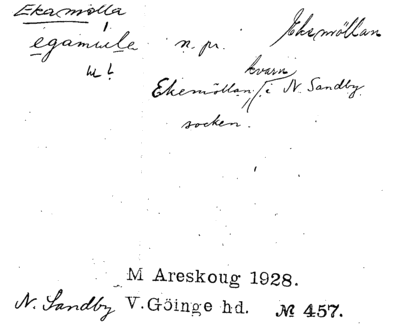 Ekamölla
egamule n. pr. Ekamöllan
kvarn
Ekemöllan i N. Sandby
socken.
M Areskoug 1928.
N. Sandby V. Göinge hd. № 457.